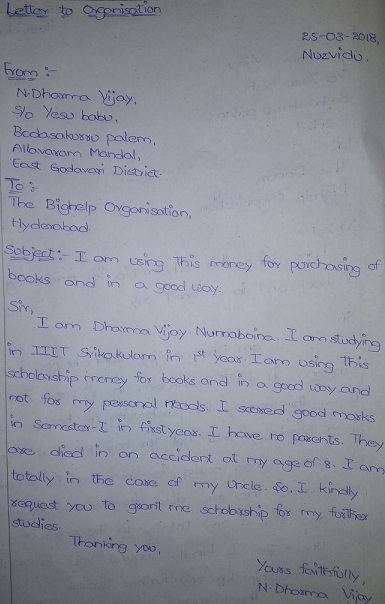 Letter to Organisation
25-03-2018,
Nuzvidu.
From :-
N.Dharma Vijay,
S/o Yesu babu,
Bodasakurru palem,
Allavaram Mandal,
East Godavari District.
To :-
The Bighelp Organisation,
Hyderabad
Subject:- I am using this money for purchasing of
books and in a good way.
Sir,
I am Dharma Vijay Nummabaina. I am studying
in IIIT Srikakulam in 1st year. I am using this
scholarship money for books and in a good way and
not for my personal needs. I scored good marks
in Semester-I in first year. I have no parents. They
are died in an accident at my age of 8. I am
totally in the care of my uncle. So, I kindly
request you to grant me scholarship for my further
studies.
Thanking you,
Yours faithfully,
N. Dharma Vijay